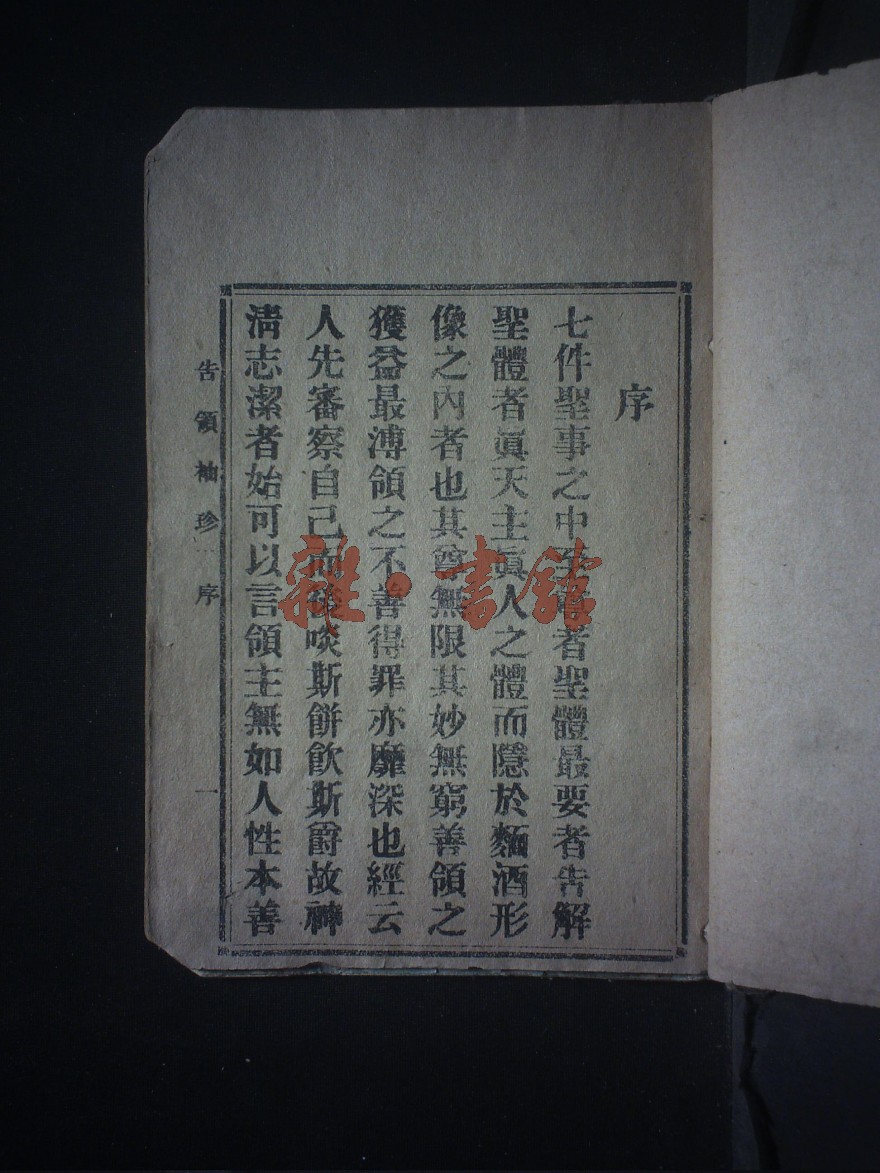 序
七件聖事之中至尊者聖體最要者告解
聖體者眞天主眞人之體而隱於麵酒形
像之內者也其尊無限其妙無窮善領之
獲益最溥領之不善得罪亦靡深也經云
人先審察自己而後啖斯餅飮斯爵故神
淸志潔者始可以言領主無如人性本善
告領袖珍 序 一
雜·書館